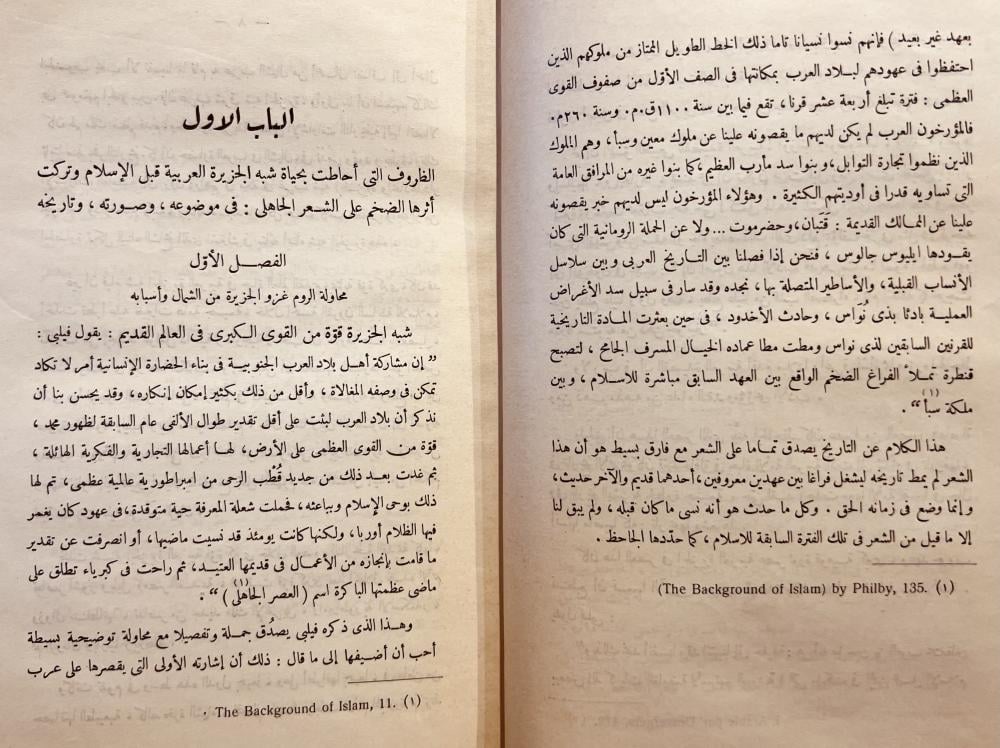 بعهد غير بعيد) فإنهم نسوا نسيانا تاما ذلك الخط الطويل الممتاز من ملوكهم الذين
احتفظوا فى عهودهم لبلاد العرب بمكانتها فى الصف الأول من صفوف القوى
العظمى : فترة تبلغ أربعة عشر قرنا ، تقع فيما بين سنة ١١٠٠ق.م. وسنة ٢٦٠م.
فالمؤرخون العرب لم يكن لديهم ما يقصونه علينا عن ملوك معين وسبأ ، وهم الملوك
الذين نظموا تجارة التوابل، وبنوا سد مأرب العظيم، كما بنوا غيره من المرافق العامة
التى تساويه قدرا فى أوديتهم الكثيرة . وهؤلاء المؤرخون ليس لديهم خبر يقصونه
علينا عن الممالك القديمة : قَتَبان، وحضرموت ... ولا عن الحملة الرومانية التى كان
يقودها ايليوس جالوس ، فنحن إذا فصلنا بين التاريخ العربى وبين سلاسل
الأنساب القبلية ، والأساطير المتصلة بها ، نجده وقد سار فى سبيل سد الأغراض
العملية بادئا بذى نُوَاس ، وحادث الأخدود ، فى حين بعثرت المادة التاريخية
للقرنين السابقين لذى نواس ومطت مطا عماده الخيال المسرف الجامح ، لتصبح
قنطرة تملأ الفراغ الضخم الواقع بين العهد السابق مباشرة للاسلام ، وبين
ملكة سبأ (١) " .
هذا الكلام عن التاريخ يصدق تماما على الشعر مع فارق بسيط هو أن هذا
الشعر لم يمط تاريخه ليشغل فراغا بين عهدين معروفين، أحدهما قديم والآخر حديث،
وإنما وضع فى زمانه الحق . وكل ما حدث هو أنه نسى ما كان قبله ، ولم يبق لنا
إلا ما قيل من الشعر فى تلك الفترة السابقة للاسلام ، كما حدّدها الجاحظ .
(١) The Background of Islam) by Philby, 135.)
الباب الاول
الظروف التى أحاطت بحياة شبه الجزيرة العربية قبل الإسلام وتركت
أثرها الضخم على الشعر الجاهلى : فى موضوعه ، وصورته ، وتاريخه
الفصل الأوّل
محاولة الروم غزو الجزيرة من الشمال وأسبابه
شبه الجزيرة قوّة من القوى الكبرى فى العالم القديم : يقول فيلبى :
" إن مشاركة أهل بلاد العرب الجنوبية فى بناء الحضارة الإنسانية أمر لا تكاد
تمكن فى وصفه المغالاة ، وأقل من ذلك بكثير إمكان إنكاره، وقد يحسن بنا أن
نذكر أن بلاد العرب لبثت على أقل تقدير طوال الألفى عام السابقة لظهور محمد ،
قوّة من القوى العظمى على الأرض، لها أعمالها التجارية والفكرية الهائلة ،
ثم غدت بعد ذلك من جديد قُطْب الرحى من امبراطورية عالمية عظمى، تم لها
ذلك بوحى الإسلام وبباعثه، فحملت شعلة المعرفة حية متوقدة، فى عهود كان يغمر
فيها الظلام أوربا، ولكنها كانت يومئذ قد نسيت ماضيها، أو انصرفت عن تقدير
ما قامت بإنجازه من الأعمال فى قديمها العتيد، ثم راحت فى كبرياء تطلق على
ماضى عظمتها الباكرة اسم (العصر الجاهلى) (١) " .
وهذا الذى ذكره فيلبى يصدُق جملة وتفصيلا مع محاولة توضيحية بسيطة
أحب أن أضيفها إلى ما قال : ذلك أن إشارته الأولى التى يقصرها على عرب
(١) The Background of Islam, 11.